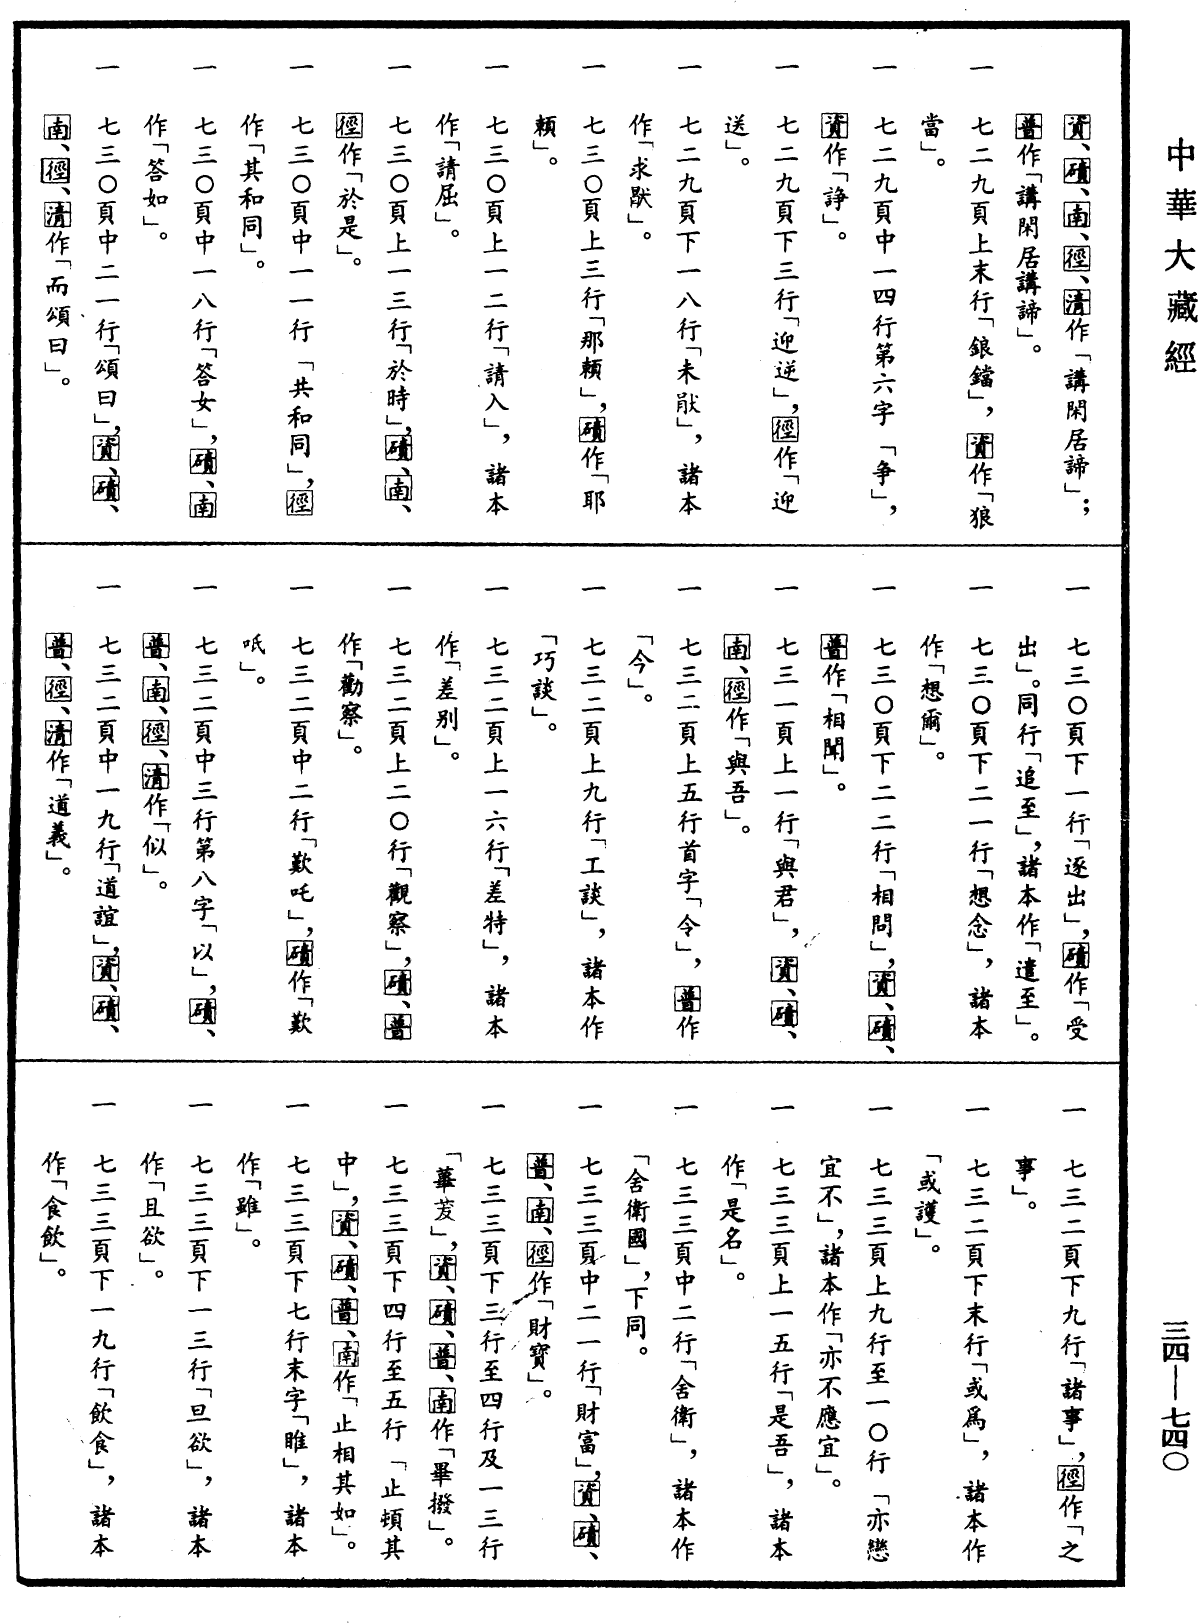 中華大藏經
資、磧、南、徑、清作「講閑居諦」；
普作「講閑居講諦」。
一 七二九頁上末行「鋃鐺」，資作「狼
當」。
一 七二九頁中一四行第六字「争」，
資作「諍」。
一 七二九頁下三行「迎逆」，徑作「迎
送」。
一 七二九頁下一八行「未猒」，諸本
作「求猒」。
一 七三〇頁上三行「那頼」，磧作「耶
頼」。
一 七三〇頁上一二行「請入」，諸本
作「請屈」。
一 七三〇頁上一三行「於時」，磧、南、
徑作「於是」。
一 七三〇頁中一一行「共和同」，徑
作「其和同」。
一 七三〇頁中一八行「答女」，磧、南
作「答如」。
一 七三〇頁中二一行「頌曰」，資、磧、
南、徑、清作「而頌曰」。
一 七三〇頁下一行「逐出」，磧作「受
出」。同行「追至」，諸本作「遣至」。
一 七三〇頁下二一行「想念」，諸本
作「想爾」。
一 七三〇頁下二二行「相問」，資、磧、
普作「相聞」。
一 七三一頁上一行「與君」，資、磧、
南、徑作「與吾」。
一 七三二頁上五行首字「令」，普作
「今」。
一 七三二頁上九行「工談」，諸本作
「巧談」。
一 七三二頁上一六行「差特」，諸本
作「差别」。
一 七三二頁上二〇行「觀察」，磧、普
作「勸察」。
一 七三二頁中二行「歎吒」，磧作「歎
呧」。
一 七三二頁中三行第八字「以」，磧、
普、南、徑、清作「似」。
一 七三二頁中一九行「道誼」，資、磧、
普、徑、清作「道義」。
一 七三二頁下九行「諸事」，徑作「之
事」。
一 七三二頁下末行「或爲」，諸本作
「或護」。
一 七三三頁上九行至一〇行「亦戀
宜不」，諸本作「亦不應宜」。
一 七三三頁上一五行「是吾」，諸本
作「是名」。
一 七三三頁中二行「舍衛」，諸本作
「舍衛國」，下同。
一 七三三頁中二一行「財富」，資、磧、
普、南、徑作「財寶」。
一 七三三頁下三行至四行及一三行
「蓽茇」，資、磧、普、南作「畢撥」。
一 七三三頁下四行至五行「止頓其
中」，資、磧、普、南作「止相其如」。
一 七三三頁下七行末字「睢」，諸本
作「雖」。
一 七三三頁下一三行「旦欲」，諸本
作「且欲」。
一 七三三頁下一九行「飲食」，諸本
作「食飲」。
三四—七四〇